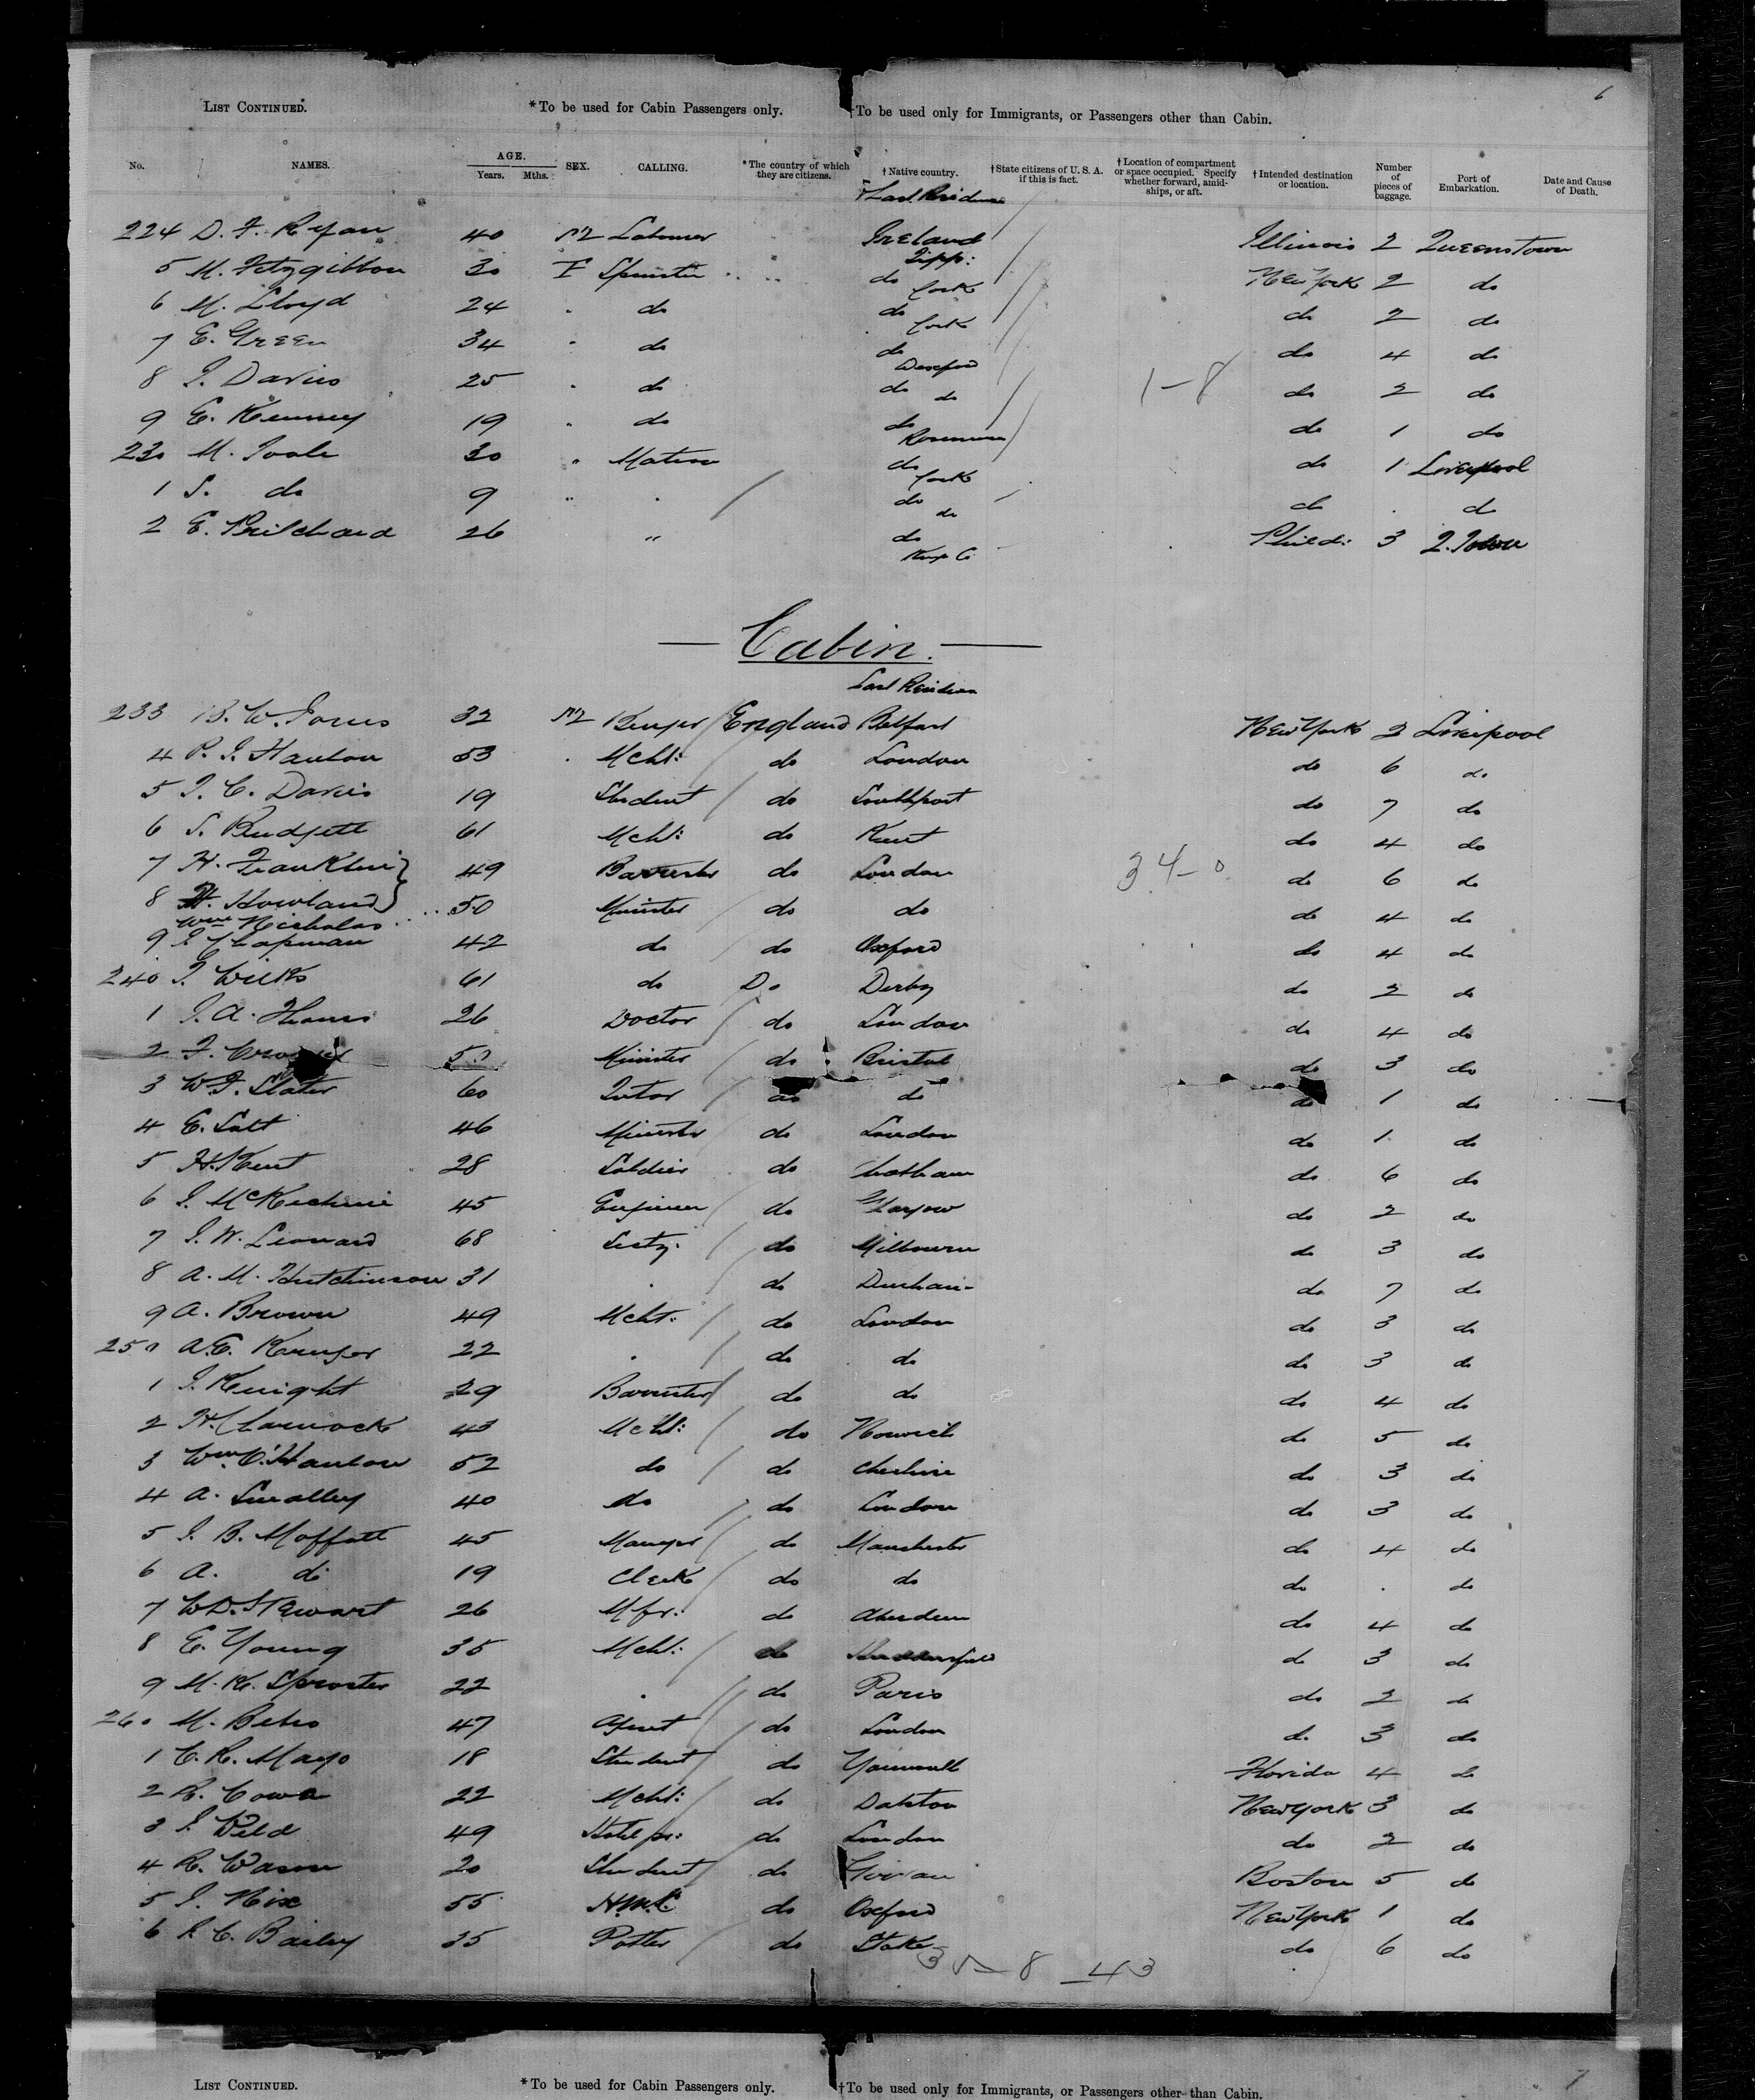 6
LIST CONTINUED. *To be used for Cabin Passengers only. †To be used only for Immigrants, or Passengers other than Cabin.
No. NAMES. AGE. Years. Mths. SEX. CALLING. *The country of which they are citizens. †Native country. †State citizens of U. S. A. if this is fact. †Location of compartment or space occupied. Specify whether forward, amidships, or aft. †Intended destination or location. Number of pieces of baggage. Port of Embarkation. Date and Cause of Death.
& Last Residence
224 D. F. Ryan 40 M Labourer Ireland Illinois 2 Queenstown
Tipp:
5 M. Fitzgibbon 30 F Spinster do New York 2 do
Cork
6 M. Lloyd 24 " do do do 2 do
Cork
7 E. Green 34 " do do do 4 do
Wexford
8 J. Davies 25 " do do do 2 do
do
1-8
9 E. Kenney 19 " do do do 1 do
230 M. Toole 30 " Matron do do 1 Liverpool
Cork
1 S. do 9 " do do do
do
2 E. Prilchard 26 " do Phild: 3 Q.Town
Kings Co.
Cabin.
Last Residence
233 B. W. Jones 32 M England Belfast New York 3 Liverpool
4 P. J. Hanlon 53 " Mcht: do London do 6 do
5 J. C. Davis 19 Student do Southport do 7 do
6 S. Budgett 61 Mcht: do Kent do 4 do
7 H. Franklin 49 Barrister do London do 6 do
34-0
8 H. Howland 50 Minister do do do 4 do
Wm Nicholas
9 J. Chapman 42 do do Oxford do 4 do
240 J. Wilks 61 do Do Derby do 2 do
1 J. A. 26 Doctor do London do 4 do
2 F. 50 Minister do Bristol do 3 do
3 W. F. Slater 60 Tutor do do do 1 do
4 E. Salt 46 Minister do London do 1 do
5 H. Kent 28 Soldier do Chatham do 6 do
6 J. McKechnie 45 Engineer do Glasgow do 2 do
7 J. W. Leonard 68 do Milbourn do 3 do
8 A. M. Hutchinson 31 do Durham do 7 do
9 A. Brown 49 Mcht: do London do 3 do
250 A. E. 22 do do do 3 do
1 J. Knight 29 Barrister do do do 4 do
2 H. Charnock 43 Mcht: do Norwich do 5 do
3 Wm O'Hanlon 52 do do Cheshire do 3 do
4 A. Smalley 40 do do London do 3 do
5 J. B. Moffatt 45 Manager do Manchester do 4 do
6 A. do 19 Clerk do do do do
7 W. D. Stewart 26 Mfr. do Aberdeen do 4 do
8 E. Young 35 Mcht: do Huddersfield do 3 do
9 M. K. Sproster 22 do Paris do 2 do
260 M. Behs 47 Agent do London do 3 do
1 C. R. Mayo 18 Student do Yarmouth Florida 4 do
2 R. Cowa 22 Mcht: do Dalston New York 3 do
3 J. Weld 49 Hotel pr: do London do 2 do
4 R. Wason 20 Student do Girvan Boston 5 do
5 J. Hix 55 H.M.C. do Oxford New York 1 do
6 R. C. Bailey 35 Potter do Stoke do 6 do
35-8 -43
LIST CONTINUED. *To be used for Cabin Passengers only. †To be used only for Immigrants, or Passengers other than Cabin.
7